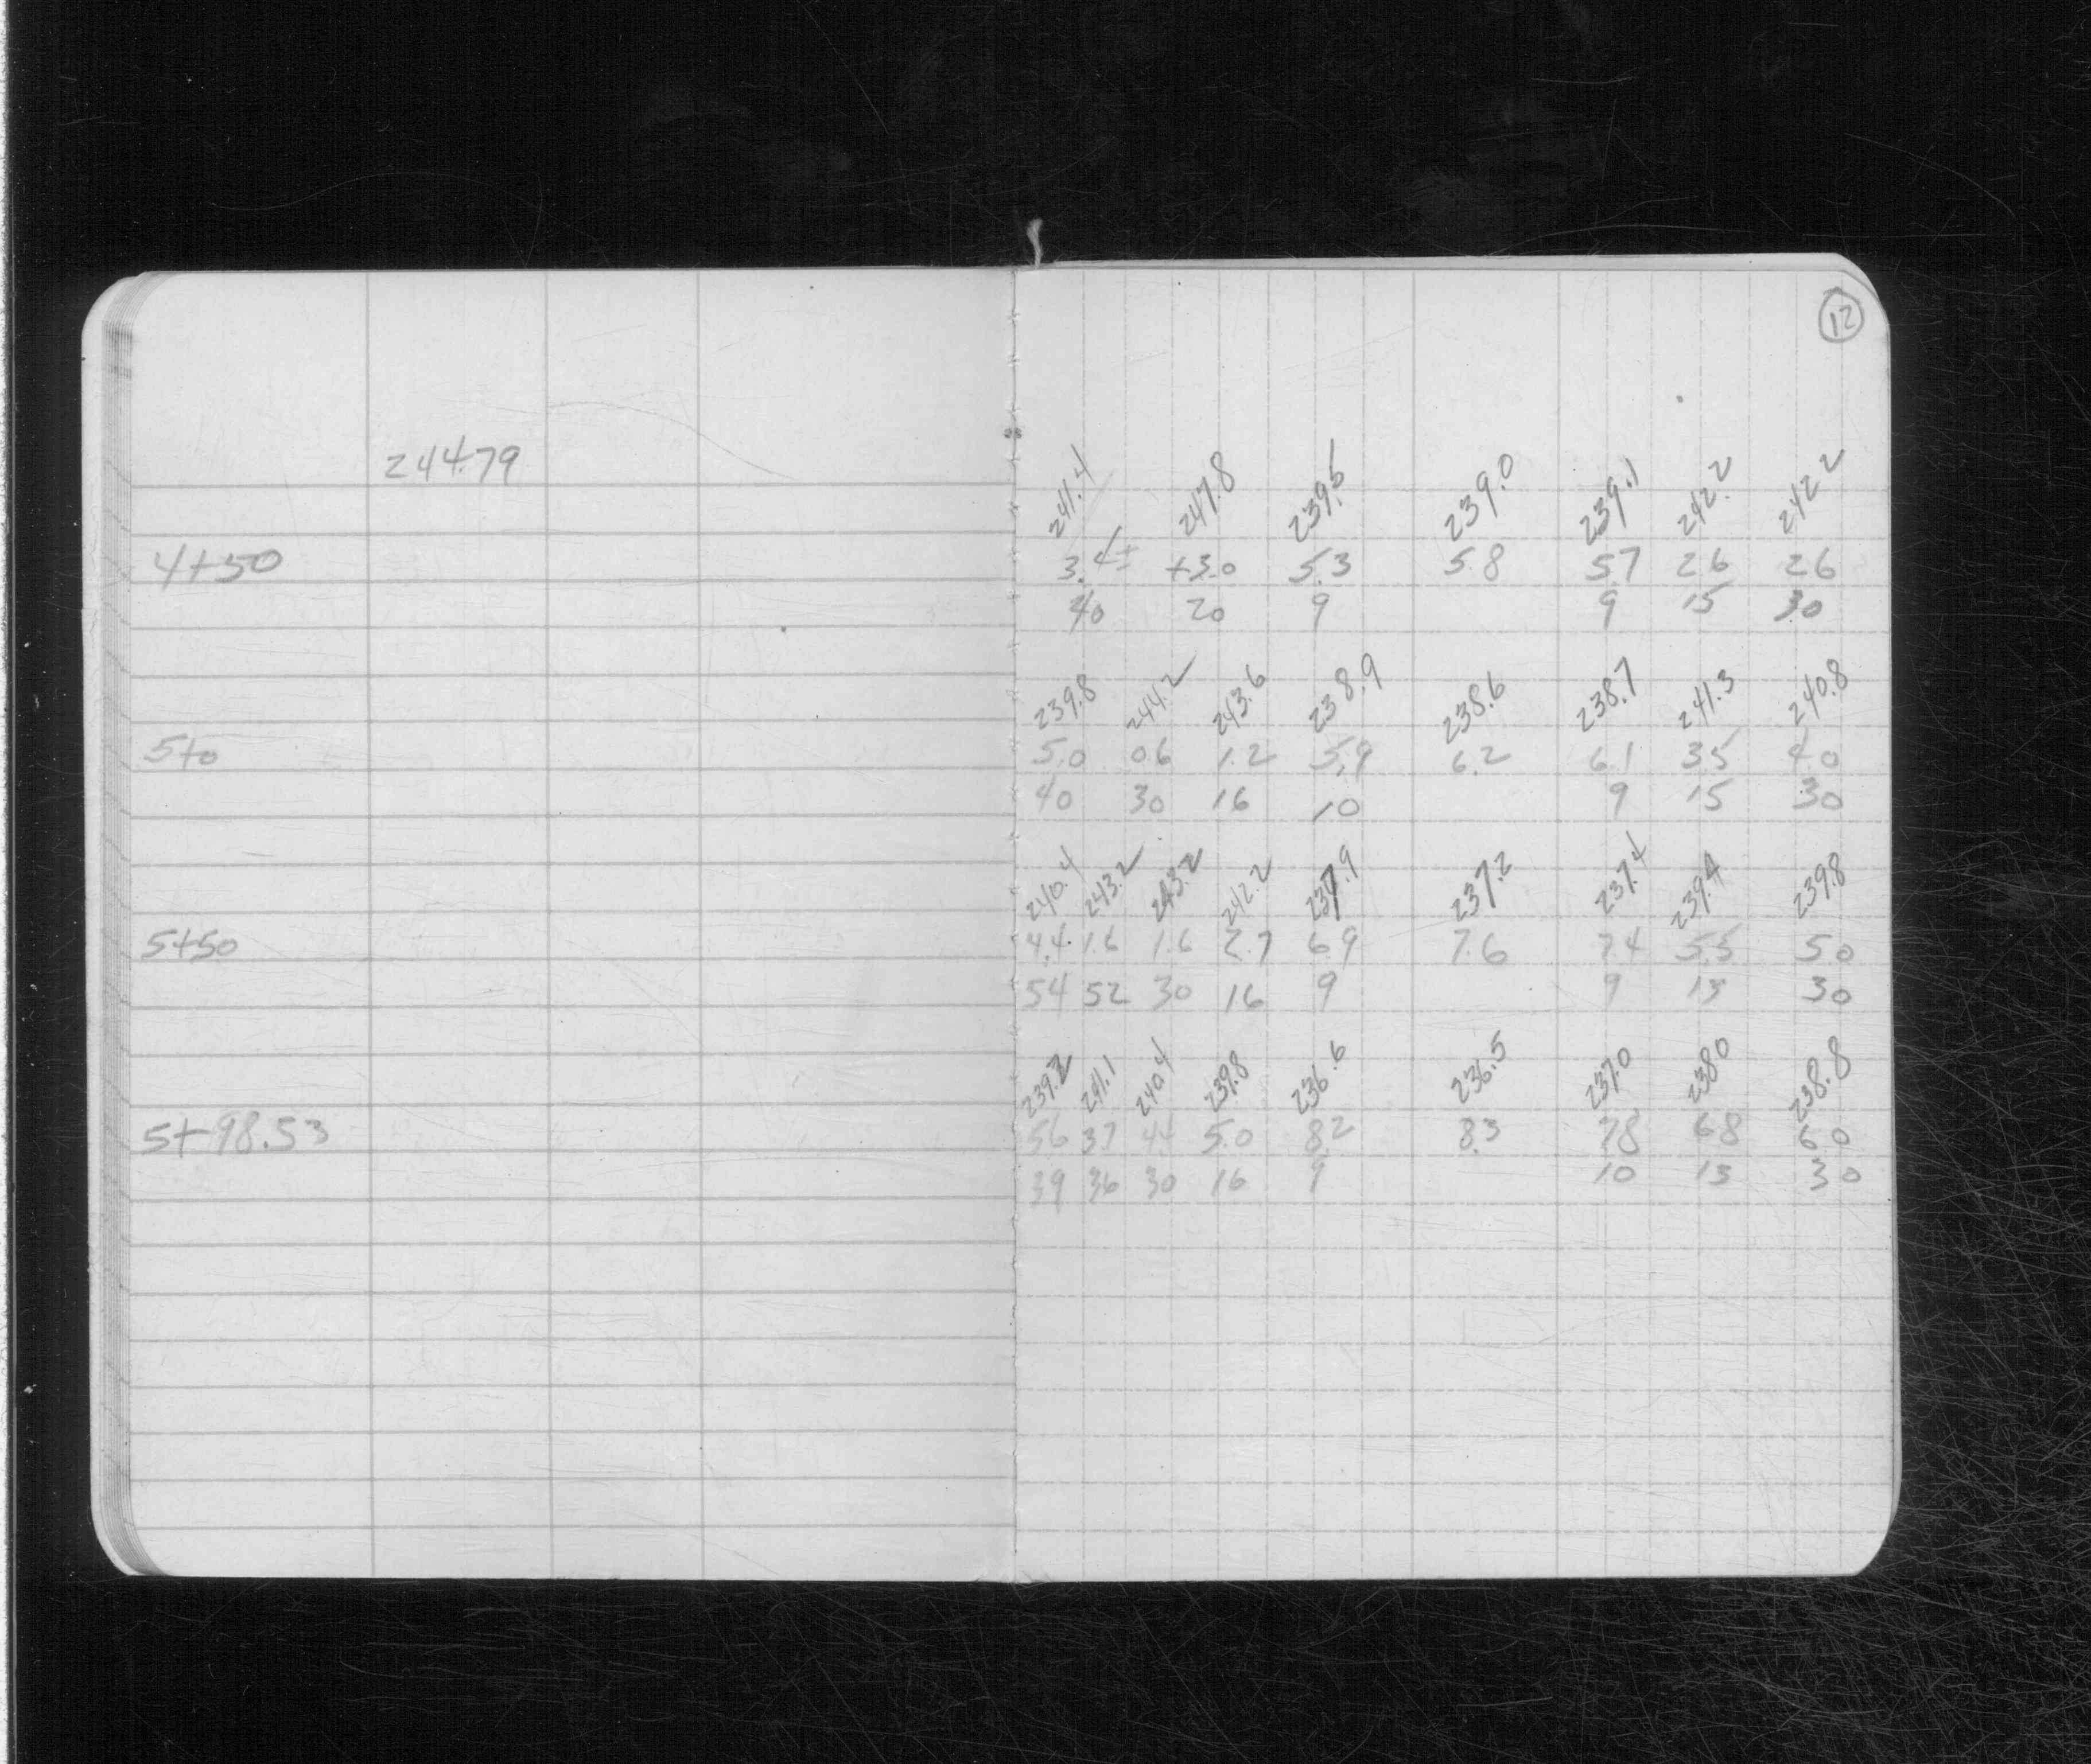 12
244.79
241.4 247.8 239.6 239.0 239.1 242.2 242.2
4+50 3.4± +3.0 5.3 5.8 5.7 2.6 2.6
40 20 9 9 15 30
239.8 244.2 243.6 238.9 238.6 238.7 241.3 240.8
5+0 5.0 0.6 1.2 5.9 6.2 6.1 3.5 4.0
40 30 16 10 9 15 30
240.4 243.2 243.2 242.2 237.9 237.2 237.4 239.4 239.8
5+50 4.4 1.6 1.6 2.7 6.9 7.6 7.4 5.5 5.0
54 52 30 16 9 9 13 30
239.2 241.1 240.4 239.8 236.6 236.5 237.0 238.0 238.8
5+98.53 5.6 3.7 4.4 5.0 8.2 8.3 7.8 6.8 6.0
39 36 30 16 9 10 13 30